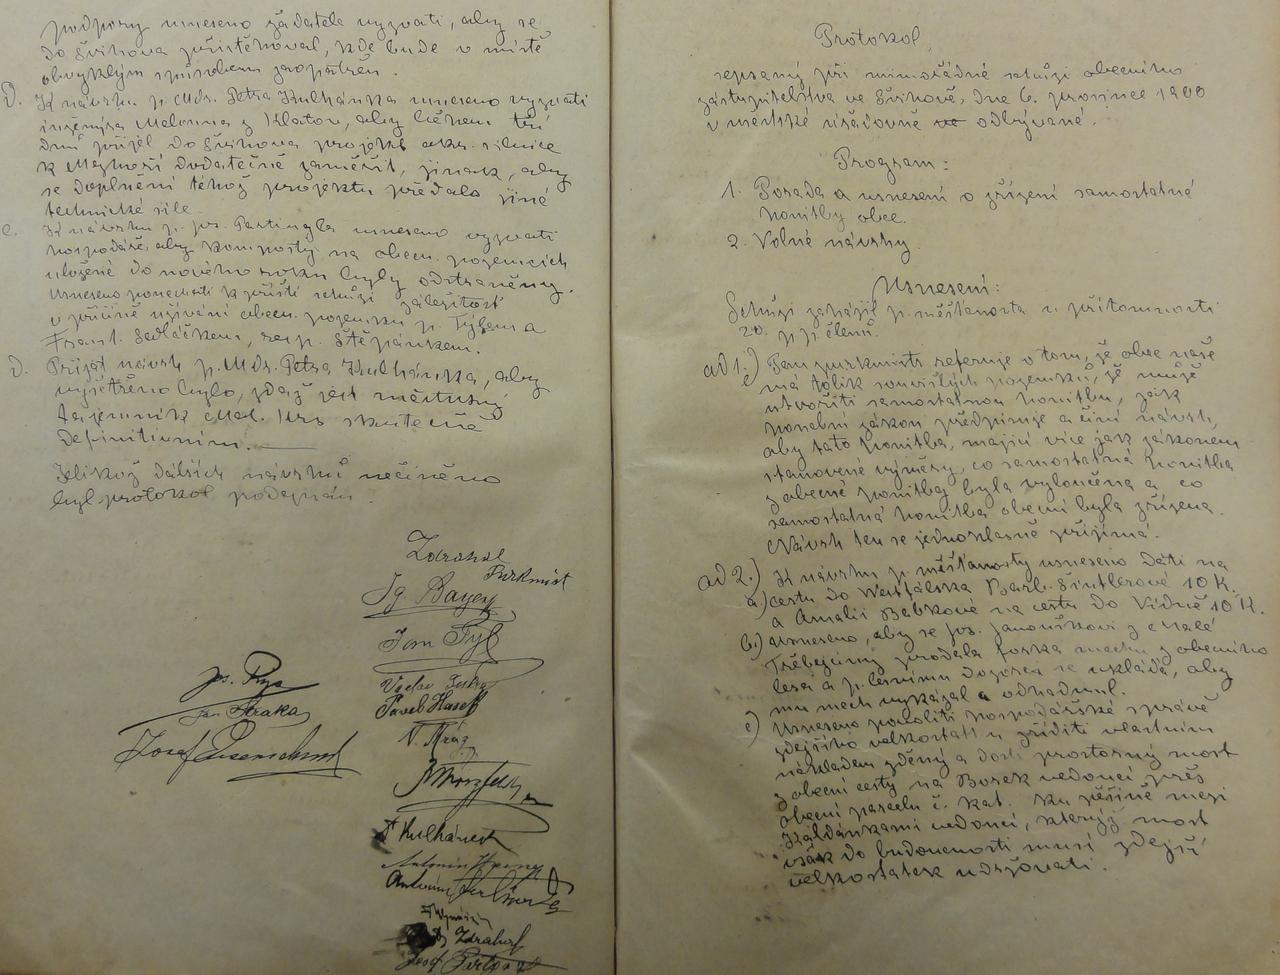 podpory usneseno žadatele vyzvati, aby se
do Švihova přistěhoval, kde bude v místě
obvyklým způsobem zaopatřen.
K návrhu p. MDr. Petra Kulhánka usneseno vyzvati
inženýra z Klatov, aby během tří
dnů přijel do Švihova projekt okr. silnice
k dodatečně zaměřit, jinak, aby
se doplnění téhož projektu předalo jiné
technické síle.
K návrhu p. Jos. usneseno vyzvati
hospodáře, aby komposty na obecn. pozemcích
uložené do nového roku byly odstraněny.
Usneseno ponechati k příští schůzi záležitost
v příčině užívání obecn. pozemku p. Týlem a
Frant. Sedláčkem, resp. Štěpánkem.
Přijat návrh p. MDr. Petra Kulhánka, aby
vyšetřeno bylo, zdaž jest městský
tajemník skutečně
definitivním.
Jelikož dalších návrhů nečiněno
byl protokol podepsán.
Zdrahal
Purkmist
Ig. Bayer
Jan Tyl
Václav
Pavel Hašek
V. Mráz
Kulhánek
Antonín
Antonín
Zdrahal
Josef
Jos.
Jan Straka
Josef
Protokol,
sepsaný při mimořádné schůzi obecního
zastupitelstva ve Švihově, dne 6. prosince 1900
v městské úřadovně ve odbývané.
Program:
1. Porada a usnesení o zřízení samostatné
honitby obce.
2. Volné návrhy.
Usnesení:
Schůzi zahájil p. měšťanosta u přítomnosti
20. p.p. členů.
ad 1.) Pan purkmistr referuje o tom, že obec naše
má tolik souvislých pozemků, že může
utvořiti samostatnou honitbu, jak
honební zákon předpisuje a činí návrh,
aby tato honitba, mající více jak zákonem
stanovené výměry, co samostatná honitba
z obecné honitby byla vyloučena a co
samostatná honitba obecní byla zřízena.
Návrh ten se jednohlasně přijímá.
ad 2.) K návrhu p. měšťanosty usneseno dáti na
a) cestu do Westfálska Barb. Šintlerové 10 K.
a Amalii Babkové na cestu do Vídně 10 K.
b.) Usneseno, aby se Jos. Janouškovi z Malé
prodala mechu z obecního
lesa a p. lesnímu dozorci se ukládá, aby
mu mech vykázal a odhadnul.
c) Usneseno povoliti hospodářské správě
zdejšího velkostatku zříditi vlastním
nákladem zděný a dosti prostorný most
z obecní cesty na Borek vedoucí přes
obecní parcelu č. kat. ku pěšině mezi
vedoucí, kterýž most
však do budoucnosti musí zdejší
velkostatek udržovati.